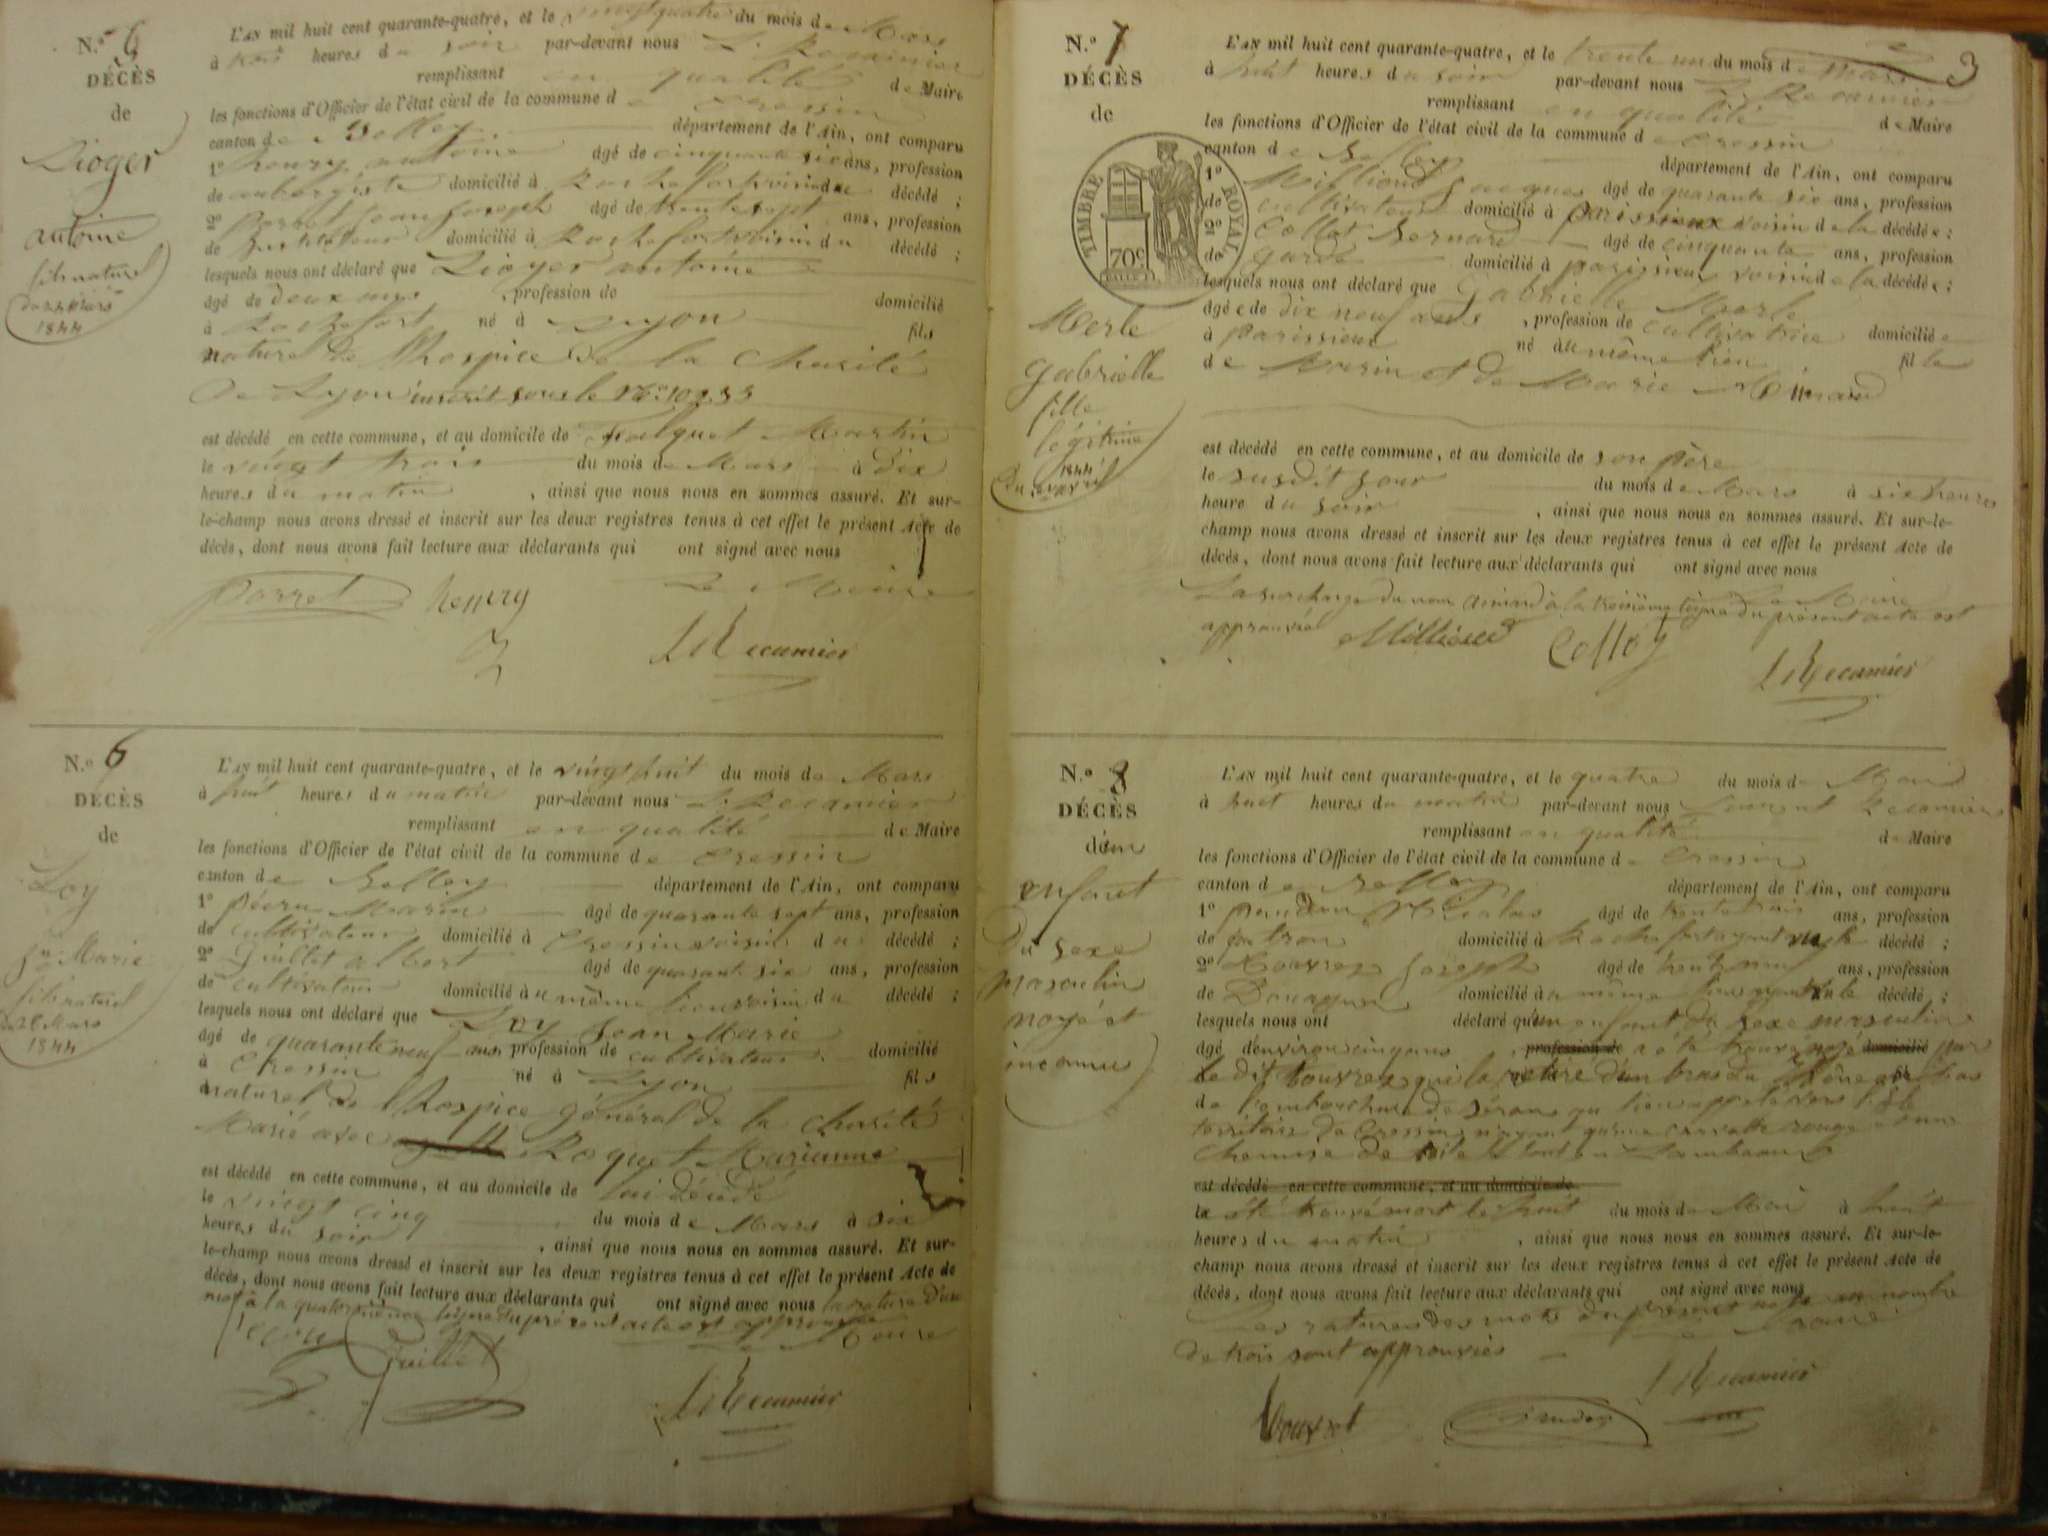 N.º 5
DÉCÈS
de
Lioger
antoine
fils naturel
1844
L'AN mil huit cent quarante-quatre, et le vingt quatre du mois de Mars
à trois heures du soir par-devant nous L. Recamier
remplissant en qualité de Maire
les fonctions d'Officier de l'état civil de la commune de Cressin
canton de Belley département de l'Ain, ont comparu
1º henry antoine âgé de cinquante six ans, profession
de aubergiste domicilié à Rochefort voisin du décédé ;
2º Parret Jean Joseph âgé de trente sept ans, profession
de Instituteur domicilié à Rochefort voisin du décédé ;
lesquels nous ont déclaré que Lioger antoine
âgé de deux mois , profession de domicilié
à Rochefort né à Lyon fils
naturel de l'hospice de la Charité
de Lyon inscrit sous le Nº
est décédé en cette commune, et au domicile de Falquet Martin
le vingt trois du mois de Mars à dix
heures du matin , ainsi que nous nous en sommes assuré. Et sur-
le-champ nous avons dressé et inscrit sur les deux registres tenus à cet effet le présent Acte de
décès, dont nous avons fait lecture aux déclarants qui ont signé avec nous
Le Maire
Parret henry
L Recamier
N.º 6
DÉCÈS
de
Loy
Jn Marie
fils naturel
du 28 Mars
1844
L'AN mil huit cent quarante-quatre, et le vingt huit du mois de Mars
à huit heures du matin par-devant nous L. Recamier
remplissant en qualité de Maire
les fonctions d'Officier de l'état civil de la commune de Cressin
canton de Belley département de l'Ain, ont comparu
1º Marin âgé de quarante sept ans, profession
de cultivateur domicilié à Cressin voisin du décédé ;
2º Guillet albert âgé de quarante six ans, profession
de cultivateur domicilié au même lieu voisin du décédé ;
lesquels nous ont déclaré que Loy Jean Marie
âgé de quarante neuf ans, profession de cultivateur domicilié
à Cressin né à Lyon fils
naturel de l'hospice général de la charité
Marié avec Roquet Marianne
est décédé en cette commune, et au domicile de lui décédé
le vingt cinq du mois de Mars à six
heures du soir , ainsi que nous nous en sommes assuré. Et sur-
le-champ nous avons dressé et inscrit sur les deux registres tenus à cet effet le présent Acte de
décès, dont nous avons fait lecture aux déclarants qui ont signé avec nous la rature d'un
mot à la quatorzième ligne du présent acte est approuvée
Le Maire
Guillet
L Recamier
3
N.º 7
DÉCÈS
de
TIMBRE ROYAL
70 c
Merle
Gabrielle
fille
légitime
1844
L'AN mil huit cent quarante-quatre, et le trente un du mois de Mars
à huit heures du soir par-devant nous L. Recamier
remplissant en qualité de Maire
les fonctions d'Officier de l'état civil de la commune de Cressin
canton de Belley département de l'Ain, ont comparu
1º Milliond Jacques âgé de quarante six ans, profession
de cultivateur domicilié à parissieux voisin de la décédée ;
2º Collet Bernard âgé de cinquante ans, profession
de garde domicilié à parissieux voisin de la décédée ;
lesquels nous ont déclaré que Gabrielle Merle
âgée de dix neuf ans , profession de cultivatrice domiciliée
à parissieux né au même lieu fille
de Marin et de Marie Aimard
est décédé en cette commune, et au domicile de son père
le susdit jour du mois de Mars à six heures
heure du soir , ainsi que nous nous en sommes assuré. Et sur-le-
champ nous avons dressé et inscrit sur les deux registres tenus à cet effet le présent Acte de
décès, dont nous avons fait lecture aux déclarants qui ont signé avec nous
Le Maire
La surcharge du nom aimard à la treizième ligne du présent acte est
approuvée
Milliond Collet
L Recamier
N.º 8
DÉCÈS
d'un
enfant
du sexe
masculin
noyé et
inconnu
L'AN mil huit cent quarante-quatre, et le quatre du mois de Mai
à huit heures du matin par-devant nous Laurent Recamier
remplissant en qualité de Maire
les fonctions d'Officier de l'état civil de la commune de Cressin
canton de Belley département de l'Ain, ont comparu
1º Nicolas âgé de trente trois ans, profession
de patron domicilié à Rochefort décédé ;
2º Bouvret Joseph âgé de trente neuf ans, profession
de Douanier domicilié au même lieu décédé ;
lesquels nous ont déclaré qu'un enfant du sexe masculin
âgé d'environ cinq ans , profession de a été trouvé noyé domicilié par
le dit Bouvret qui l'a retiré d'un bras du Rhône au bas
de l'embouchure de Séran au lieu appelé
territoire de Cressin n'ayant qu'une cravatte rouge et une
chemise de toile tout en Lambeaux
est décédé en cette commune, et au domicile de
a été trouvé mort le huit du mois de Mai à huit
heures du matin , ainsi que nous nous en sommes assuré. Et sur-le-
champ nous avons dressé et inscrit sur les deux registres tenus à cet effet le présent Acte de
décès, dont nous avons fait lecture aux déclarants qui ont signé avec nous
Les ratures des mots du présent acte au nombre
de trois sont approuvées
Le Maire
L Recamier
Bouvret